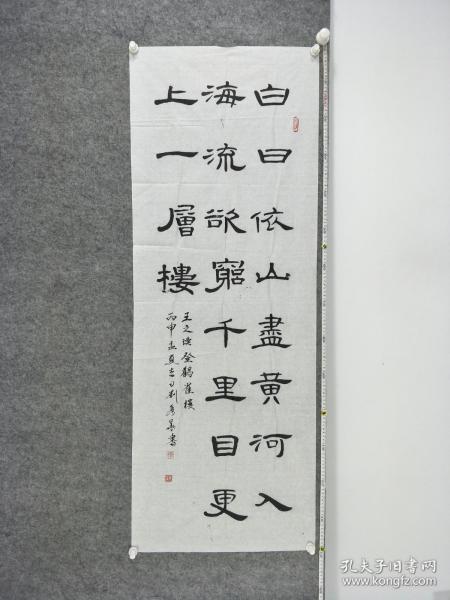 白日依山盡黃河入
海流欲窮千里目更
上一層樓
王之渙登鸛雀樓
丙申孟夏吉日劉
書
孔夫子旧书网
www.kongfz.com